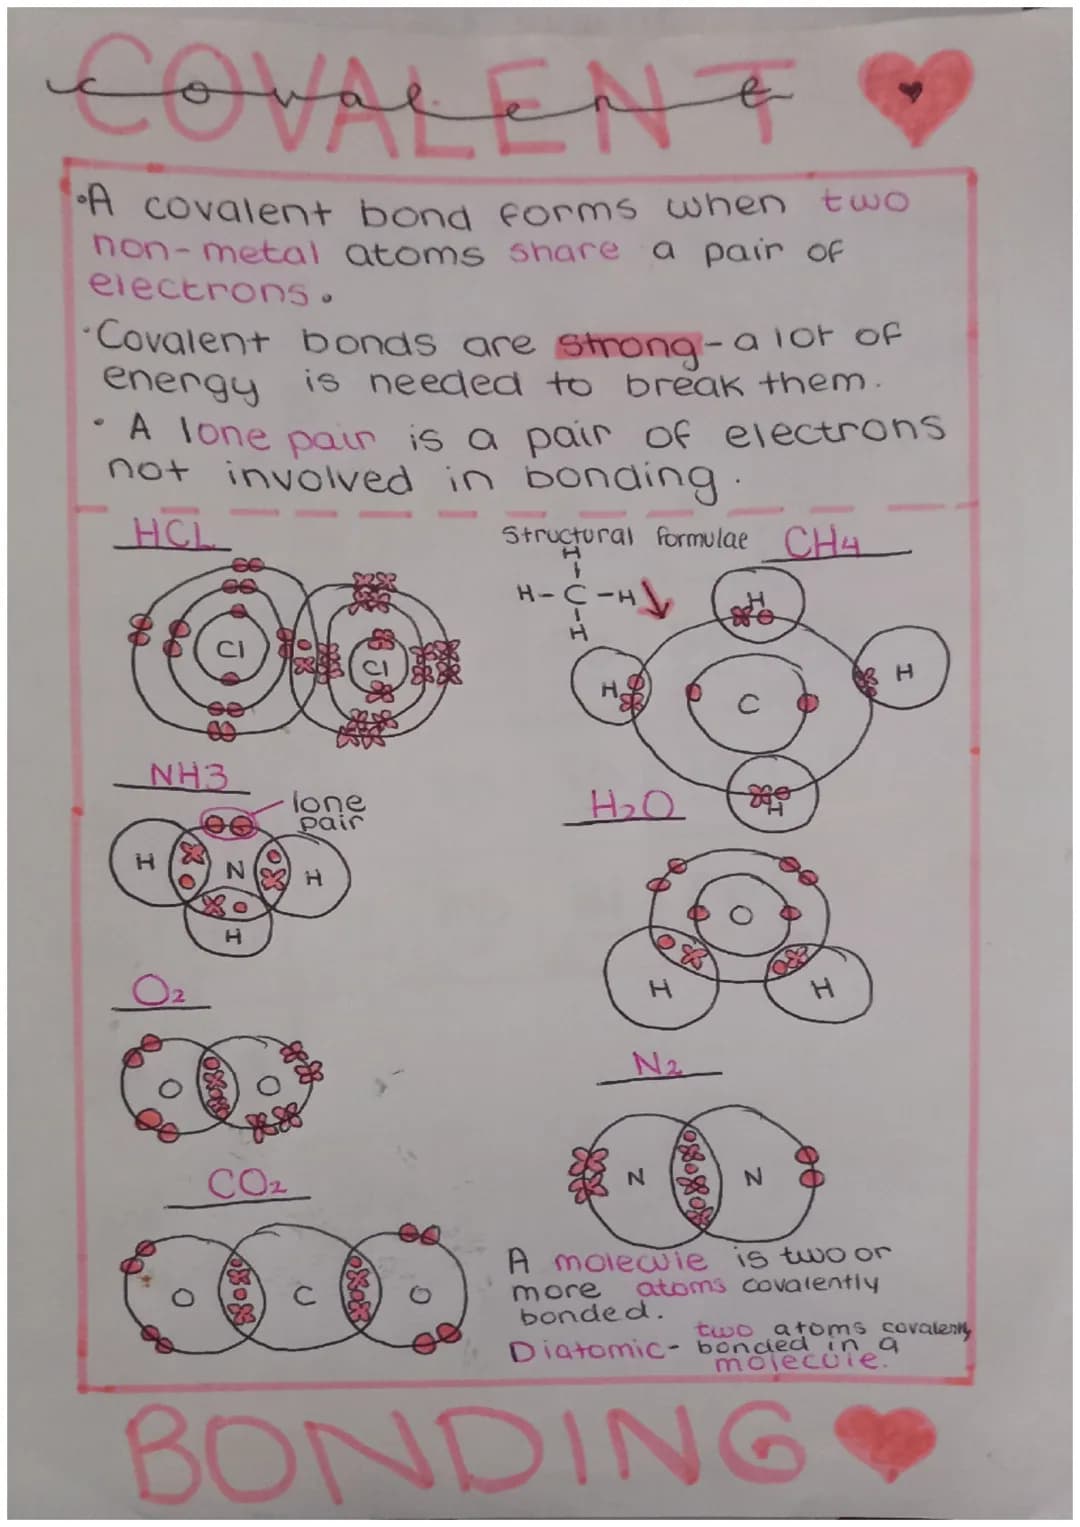 COVALENT
covalent
•A covalent bond forms when two
non-metal atoms share a pair of
electrons.
•Covalent bonds are strong-a lot of
energy is needed to break them.
• A lone pair is a pair of electrons
not involved in bonding.
HCL
Cl
Cl
Structural formulae
H
H-C-H
H
CH4
H
H
C
H
H
NH3
lone
pair
H
N
H
H
H2O
O
H
H
O2
O
O
N2
N
N
CO2
O
C
O
A molecule is two or
more atoms covalently
bonded.
two atoms covalently
Diatomic- bonded in a
molecule.
BONDING